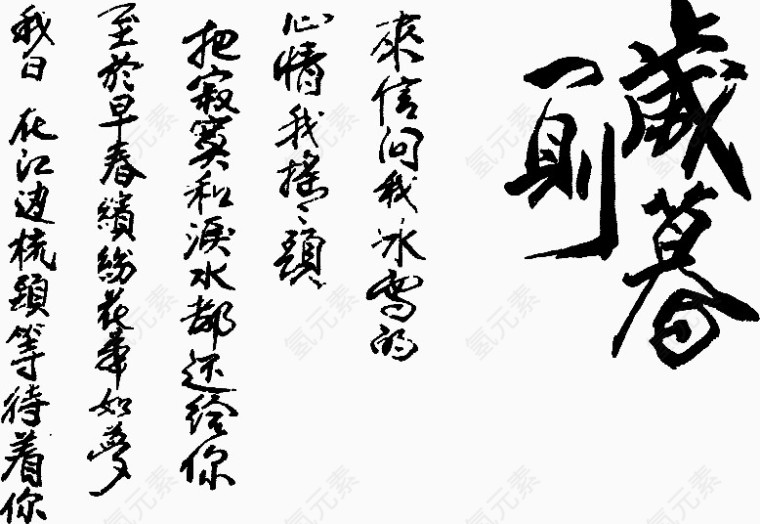 歲暮
一則
來信問我冰雪的
心情我搖〻頭
把寂寞和淚水都還給你
至於早春繽紛花如夢
我日 在江边梳頭等待着你
氢元素